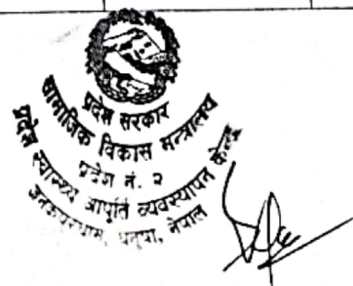 प्रदेश सरकार
सामाजिक विकास मन्त्रालय
प्रदेश नं. २
प्रदेश स्वास्थ्य आपूर्ति व्यवस्थापन केन्द्र
जनकपुरधाम, धनुषा, नेपाल